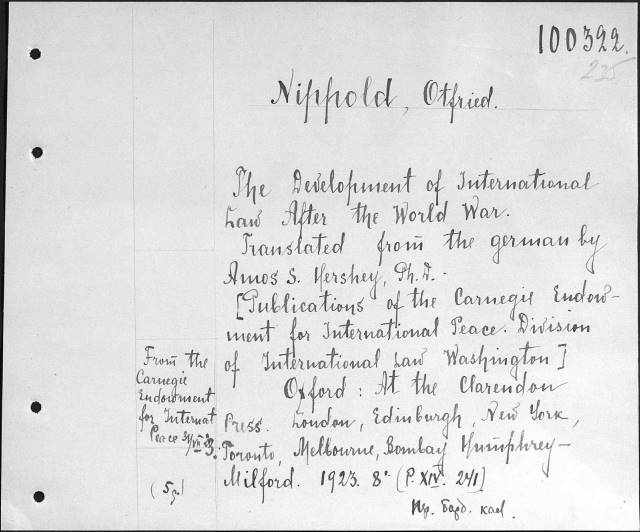 100322.
235
Nippold, Otfried.
The Development of International
Law After the World War.
Translated from the german by
Amos S. Hershey, Ph.D.
[Publications of the Carnegie Endow-
ment for International Peace. Division
of International Law Washington]
Oxford: At the Clarendon
Press. London, Edinburgh, New York,
Toronto, Melbourne, Bombay Humphrey-
Milford. 1923. 8° (P. XIV. 241)
From the
Carnegie
Endowment
for Internat
Peace